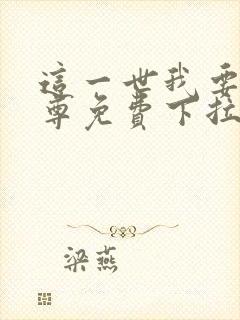 這一世我要
尊免費下拉
梁燕